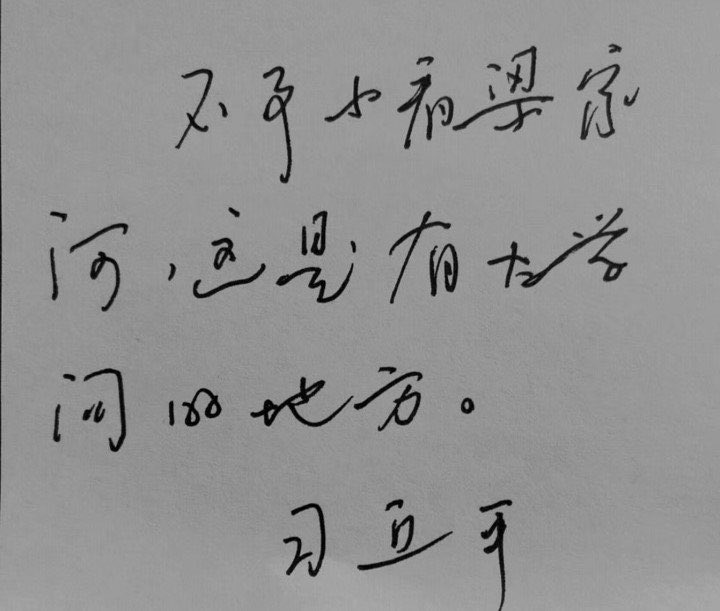 不要小看梁家
河，这是有大学
问的地方。
习近平